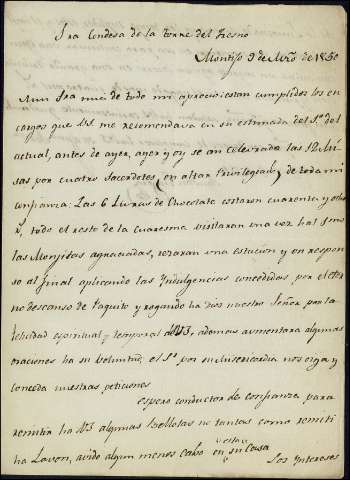 Sra Condesa de la Torre del Fresno
Montijo 9 de Mzo de 1850
Muy Sra mia de todo mi aprecio: estan cumplidos los en
cargos que VS me recomendava en su estimada del 5 del
actual, antes de ayer, ayer y oy se an celevrado las 12 Mi
sas por cuatro Sacerdotes, en altar Privilegiado, de toda mi
confianza. Las 6 Livras de Chocolate costaron cuarenta y ocho
rs, todo el resto de la cuaresma visitaran una vez hal
las Monjitas agraciadas, rezaran una estacion y un respon
so al final aplicando las Yndulgencias concedidas por el eter
no descanso de Paquito y rogando ha Dios nuestro Señor por la
felicidad espiritual y temporal de VS, ademas aumentara algunas
oraciones ha su voluntad, el Sr por su Misericordia nos oyga y
conceda nuestras peticiones
espero conductor de confianza para
remitir ha VS algunas Bellotas no tantas como remiti
ha Lavon, avido algun menos cabo en su Casa
estas
Los Yntereses